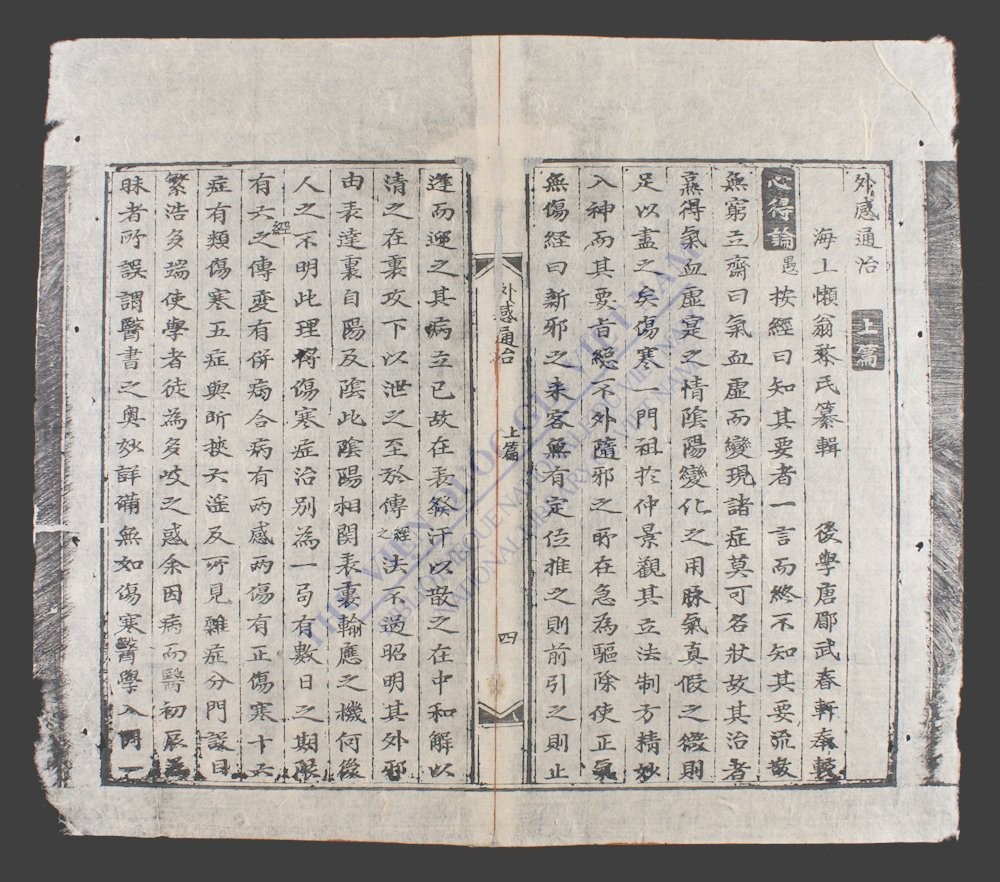 外感通治 上篇
海上懶翁黎氏纂輯 後學唐郿武春軒奉較
心得論 愚按經曰知其要者一言而終不知其要流散
無窮立齋曰氣血虛而變現諸症莫可名狀故其治者
羸得氣血虛寔之情陰陽變化之用脉氣真假之微則
足以盡之矣傷寒一門祖於仲景觀其立法制方精妙
入神而其要旨總不外隨邪之所在急為驅除使正氣
無傷経曰新邪之来客無有定位推之則前引之則止
外感通治 上篇 四
逢而迎之其病立已故在表發汗以散之在中和解以
清之在裏攻下以泄之至於傳経之法不過昭明其外邪
由表達裏自陽及陰此陰陽相関表裏輸應之機何後
人之不明此理将傷寒症治別為一局有數日之期限
有六経之傳变有併病合病有兩感兩傷有正傷寒十六
症有類傷寒五症與所挾六滛及所見雜症分門設目
繁浩多端使學者徒為多岐之惑余因病而醫初辰為
昧者所誤謂醫書之奥妙詳備無如傷寒醫學入門一
THƯ VIỆN QUỐC GIA VIỆT NAM
BIBLIOTHÈQUE NATIONALE DU VIETNAM
NATIONAL LIBRARY OF VIETNAM